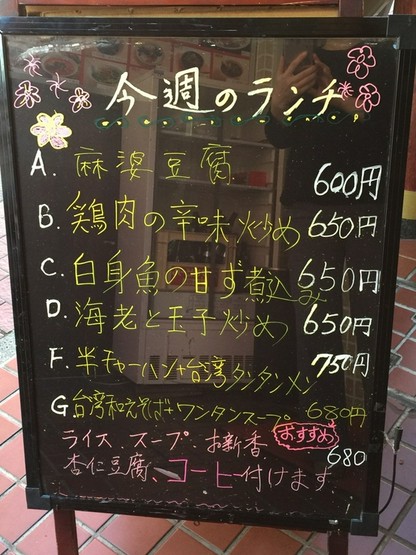 今週のランチ
A. 麻婆豆腐 600円
B. 鶏肉の辛味炒め 650円
C. 白身魚の甘ず煮込み 650円
D. 海老と玉子炒め 650円
F. 半チャーハン+台湾タンタンメン 750円
G 台湾和えそば+ワンタンスープ 680円
おすすめ 680
ライス、スープ、お新香
杏仁豆腐、コーヒー付けます